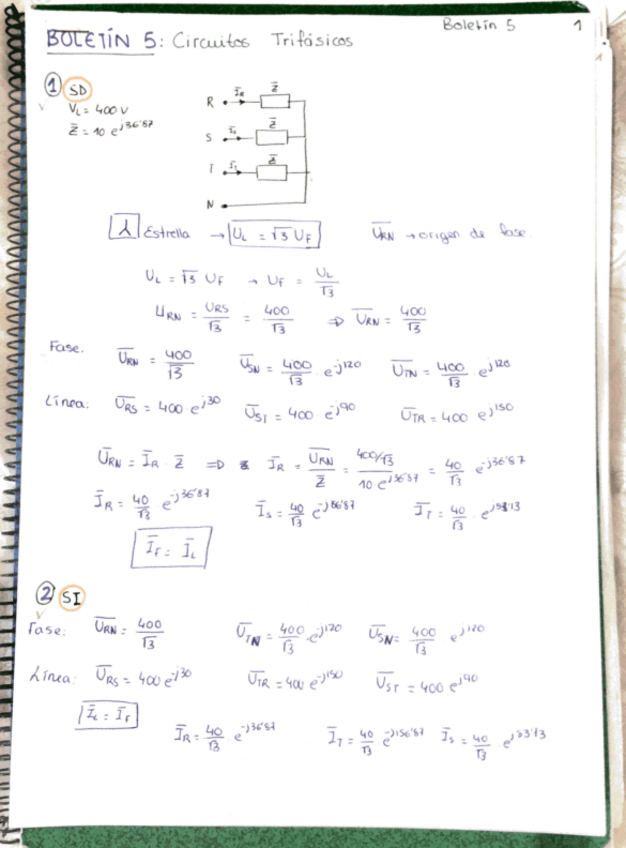 Boletín 5 1
BOLETÍN 5: Circuitos Trifásicos
① SD
V_L = 400 V
Z̄ = 10 e^{j36'87}
R Ī_R Z̄
S Ī_S Z̄
T Z̄
N
⅄ Estrella → U_L = √3 U_F  U̅_RN → origen de fase.
U_L = √3 U_F → U_F = U_L/√3
U_RN = U_RS/√3 = 400/√3 ⇒ U̅_RN = 400/√3
Fase: U̅_RN = 400/√3  U̅_SN = 400/√3 · e^{-j120}  U̅_TN = 400/√3 · e^{j120}
Línea: U̅_RS = 400 e^{j30}  U̅_ST = 400 e^{-j90}  U̅_TR = 400 e^{j150}
U̅_RN = Ī_R · Z̄ ⇒ Ī_R = U̅_RN/Z̄ = (400/√3)/(10 e^{j36'87}) = 40/√3 e^{-j36'87}
Ī_R = 40/√3 e^{-j36'87}  Ī_S = 40/√3 e^{-j156'87}  Ī_T = 40/√3 · e^{j83'13}
Ī_F = Ī_L
② SI
Fase: U̅_RN = 400/√3  U̅_TN = 400/√3 · e^{-j120}  U̅_SN = 400/√3 e^{j120}
Línea: U̅_RS = 400 e^{-j30}  U̅_TR = 400 e^{-j150}  U̅_ST = 400 e^{j90}
Ī_L = Ī_F
Ī_R = 40/√3 e^{-j36'87}  Ī_T = 40/√3 e^{-j156'87}  Ī_S = 40/√3 e^{j83'13}